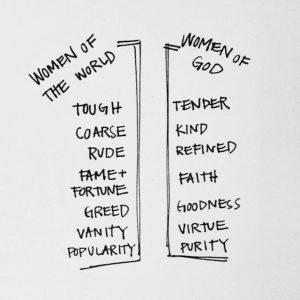 WOMEN OF
THE WORLD
TOUGH
COARSE
RUDE
FAME+
FORTUNE
GREED
VANITY
POPULARITY
WOMEN OF
GOD
TENDER
KIND
REFINED
FAITH
GOODNESS
VIRTUE
PURITY